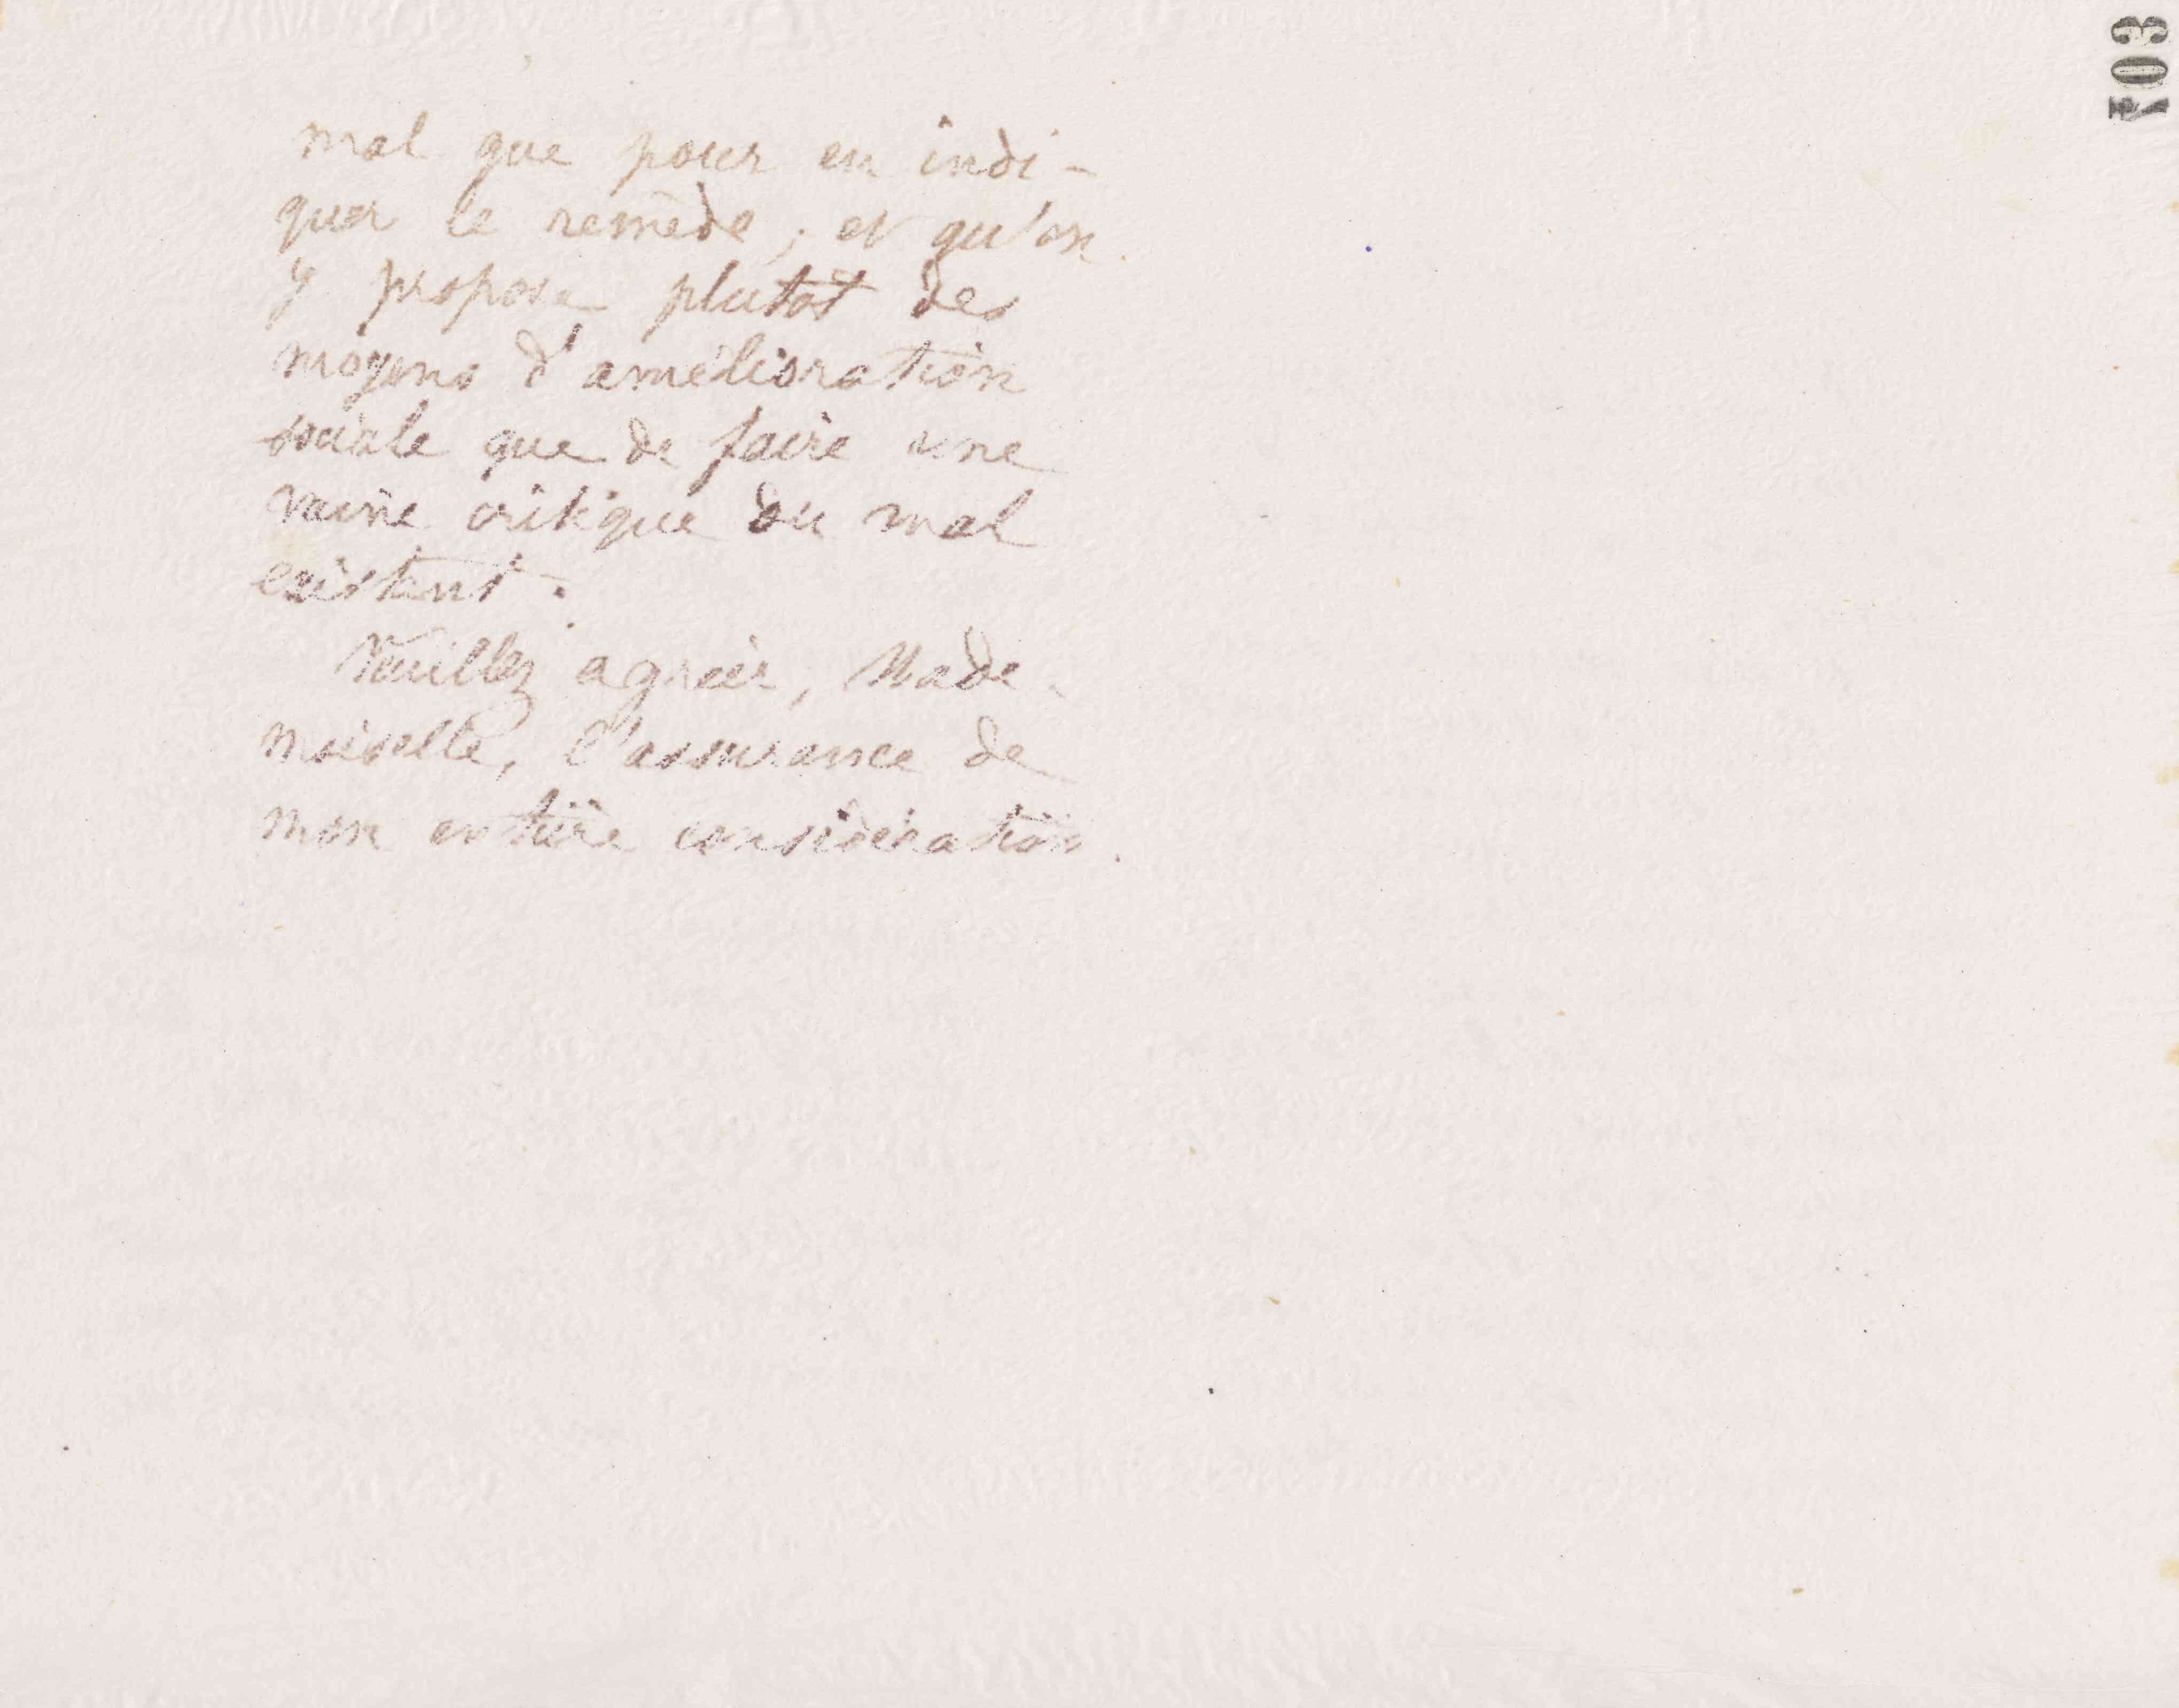 mal que pour en indi-
quer le remède ; et qu'on
y propose plutôt des
moyens d'amélioration
sociale que de faire une
vaine critique du mal
existant.
Veuillez agréer, Made-
moiselle, l'assurance de
mon entière considération.
703